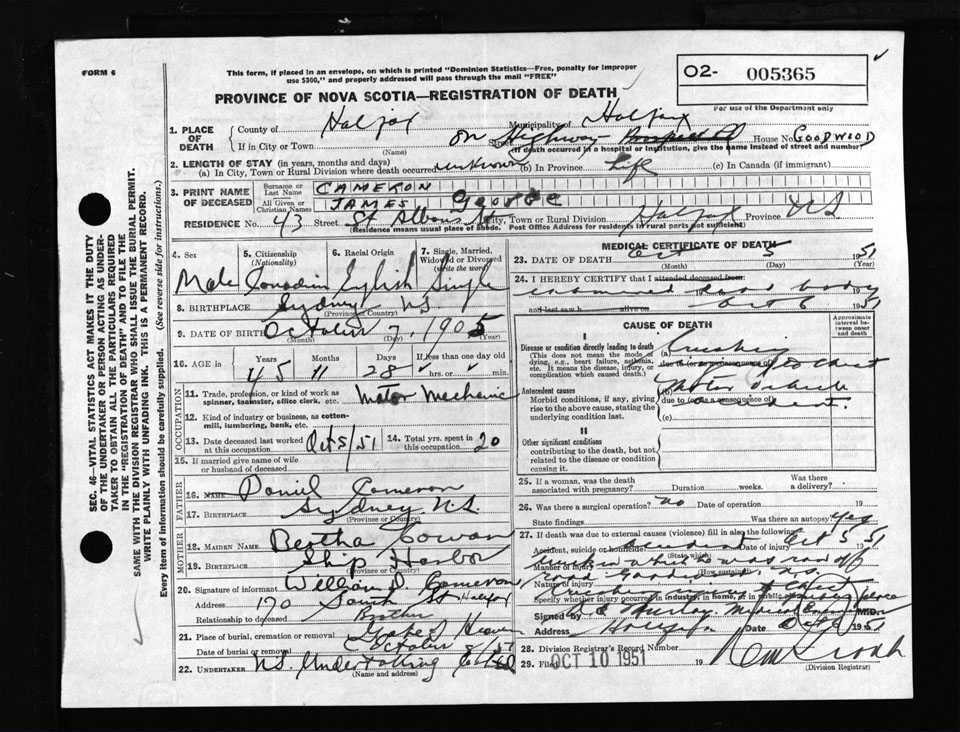 FORM 6
This form, if placed in an envelope, on which is printed "Dominion Statistics—Free, penalty for improper
use $300," and properly addressed will pass through the mail "FREE"
O2- 005365
For use of the Department only
PROVINCE OF NOVA SCOTIA—REGISTRATION OF DEATH
1. PLACE OF DEATH
County of Halifax Municipality of Halifax
If in City or Town (Name) Street On Highway House No. GOODWOOD
(If death occurred in a hospital or institution, give the name instead of street and number)
2. LENGTH OF STAY (in years, months and days)
(a) In City, Town or Rural Division where death occurred unknown (b) In Province Life (c) In Canada (if immigrant)
3. PRINT NAME OF DECEASED
Surname or Last Name CAMERON
All Given or Christian Names JAMES George
RESIDENCE No. 43 Street St Albans St City, Town or Rural Division Halifax Province N.S.
(Residence means usual place of abode. Post Office Address for residents in rural parts not sufficient)
4. Sex Male
5. Citizenship (Nationality) Canadian
6. Racial Origin English
7. Single, Married, Widowed or Divorced (write the word) Single
8. BIRTHPLACE Sydney NS
(Province or Country)
9. DATE OF BIRTH October 7, 1905
(Month) (Day) (Year)
10. AGE in Years Months Days If less than one day old
45 11 28 hrs. or min.
OCCUPATION
11. Trade, profession, or kind of work as spinner, teamster, office clerk, etc. Motor Mechanic
12. Kind of industry or business, as cotton-mill, lumbering, bank, etc.
13. Date deceased last worked at this occupation Oct 5/51
14. Total yrs. spent in this occupation 20
15. If married give name of wife or husband of deceased
FATHER
16. NAME Daniel Cameron
17. BIRTHPLACE Sydney N.S.
(Province or Country)
MOTHER
18. MAIDEN NAME Bertha Cowan
19. BIRTHPLACE Ship Harbor
(Province or Country)
20. Signature of informant William D. Cameron
Address 170 South St Halifax
Relationship to deceased Brother
21. Place of burial, cremation or removal
Date of burial or removal October 8/51
22. UNDERTAKER N.S. Undertaking Co Ltd
(Name and address)
MEDICAL CERTIFICATE OF DEATH
23. DATE OF DEATH Oct 5 1951
(Month) (Day)
24. I HEREBY CERTIFY that I attended deceased from:
examined dead body
and last saw h alive on Oct 6 1951
CAUSE OF DEATH
Approximate interval between onset and death
I
Disease or condition directly leading to death
(This does not mean the mode of dying, e.g., heart failure, asthenia, etc. It means the disease, injury, or complication which caused death.)
(a) Crushing
due to (or as a consequence of) chest
Antecedent causes
Morbid conditions, if any, giving rise to the above cause, stating the underlying condition last.
(b) Motor Vehicle
due to (or as a consequence of) accident.
(c)
II
Other significant conditions
contributing to the death, but not related to the disease or condition causing it.
25. If a woman, was the death associated with pregnancy? Duration weeks. Was there a delivery?
26. Was there a surgical operation? no Date of operation 19
State findings Was there an autopsy? yes
27. If death was due to external causes (violence) fill in also the following:
Accident, suicide or homicide? Accident Date of injury Oct 5 51
(State which)
Manner of injury
(How sustained)
Nature of injury
Specify whether injury occurred in industry, in home, or in public place
Signed by Murray Medical Examiner M.D.
Address Halifax Date Oct 6 1951
28. Division Registrar's Record Number
29. Filed OCT 10 1951 19
(Division Registrar)
SEC. 46—VITAL STATISTICS ACT MAKES IT THE DUTY
OF THE UNDERTAKER OR PERSON ACTING AS UNDER-
TAKER TO OBTAIN ALL THE PARTICULARS REQUIRED
IN THE "REGISTRATION OF DEATH" AND TO FILE THE
SAME WITH THE DIVISION REGISTRAR WHO SHALL ISSUE THE BURIAL PERMIT.
WRITE PLAINLY WITH UNFADING INK. THIS IS A PERMANENT RECORD.
Every item of information should be carefully supplied. (See reverse side for instructions.)